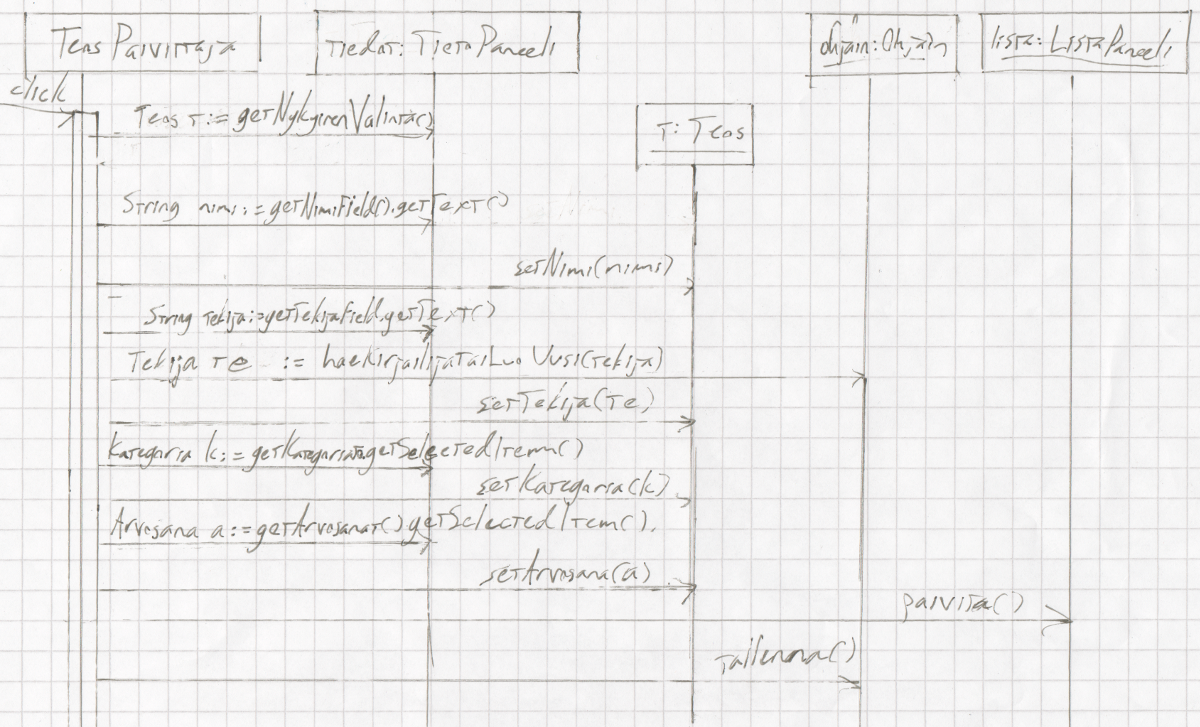 Teos Paivittaja
tiedot: TietoPaneeli
ohjain:Ohjain
lista: ListaPaneeli
click
Teos t:= getNykyinenValinta()
t: Teos
String nimi:=getNimiField().getText()
setNimi(nimi)
String tekija:=getTekijaField.getText()
Tekija te := haeKirjailijaTaiLuoUusi(tekija)
setTekija(te)
Kategoria k:=getKategoriat.getSelectedItem()
setKategoria(k)
Arvosana a:=getArvosanat().getSelectedItem().
setArvosana(a)
paivita()
tallenna()